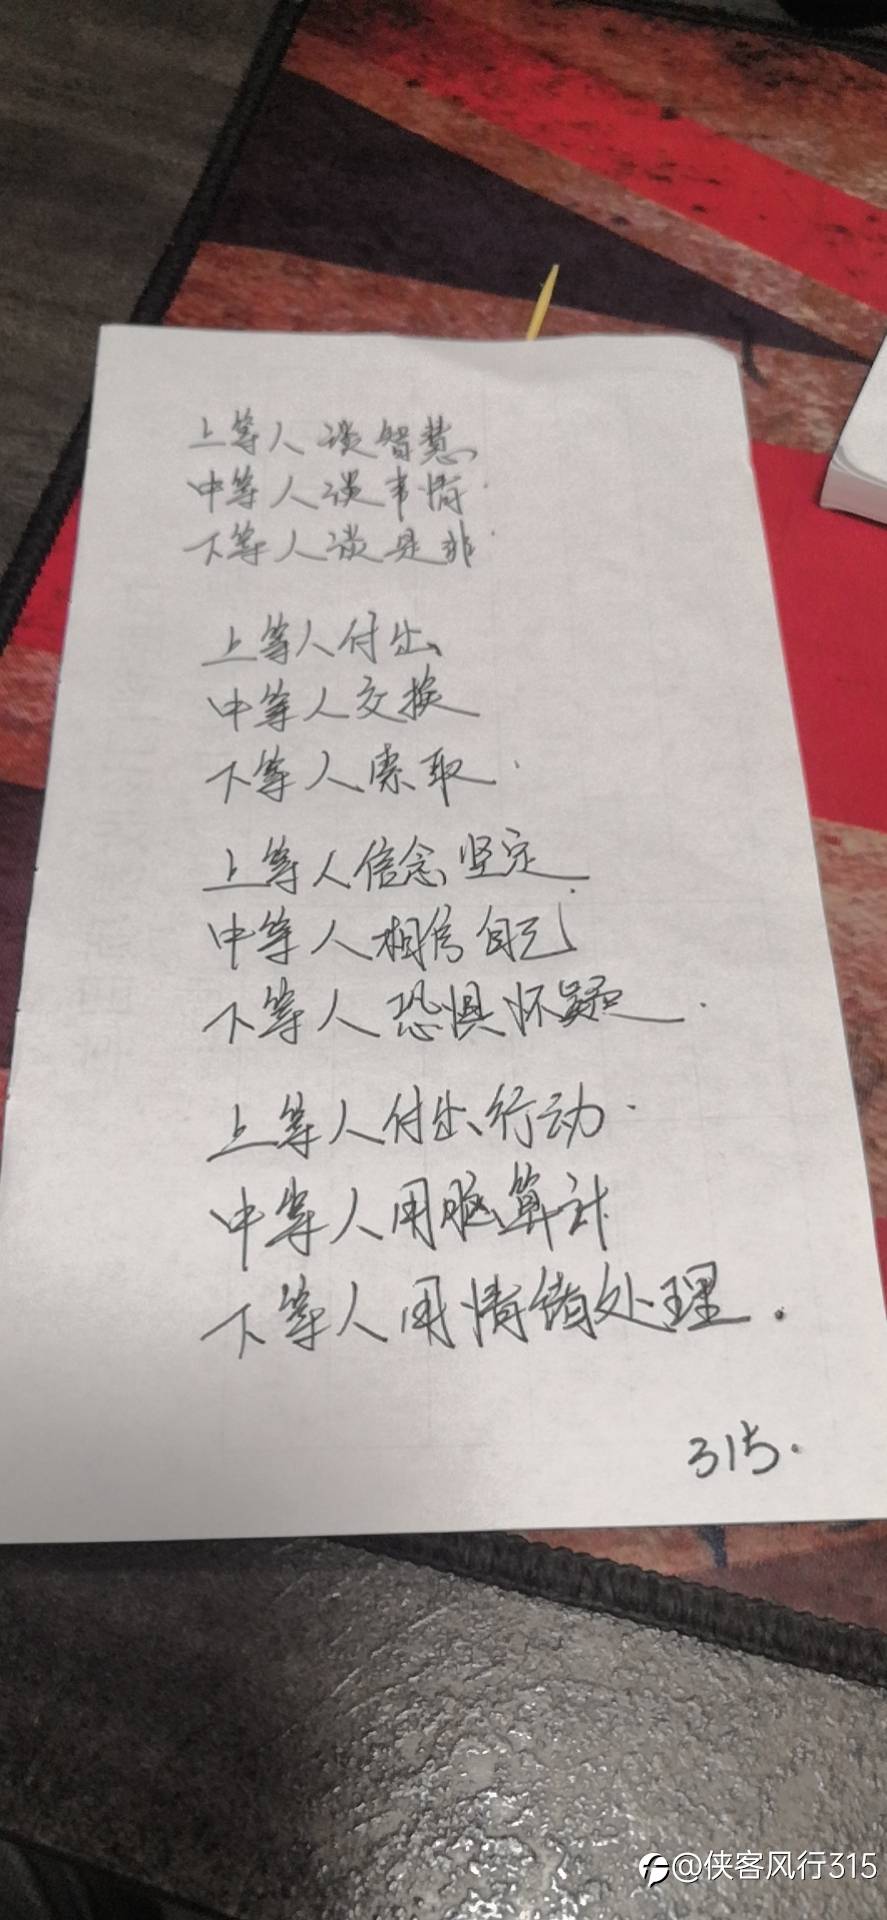 上等人谈智慧
中等人谈事情.
下等人谈是非.
上等人付出
中等人交换
下等人索取.
上等人信念坚定
中等人相信自己
下等人恐惧怀疑.
上等人付出行动.
中等人用脑算计
下等人用情绪处理.
315.
@侠客风行315